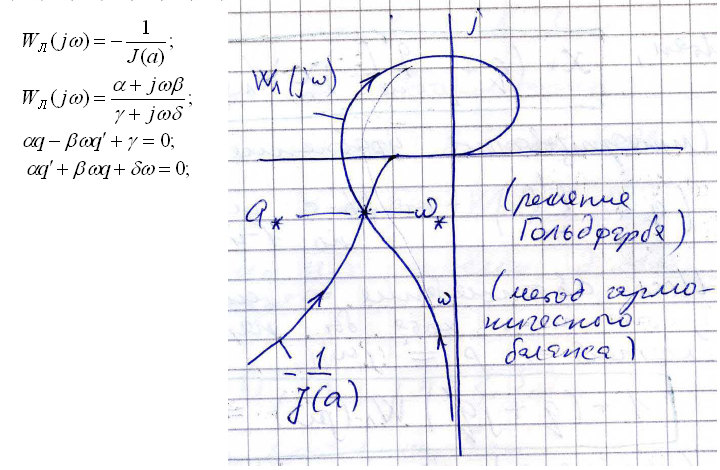 W_Л(jω) = −1/J(a);
W_Л(jω) = (α + jωβ)/(γ + jωδ);
αq − βωq′ + γ = 0;
αq′ + βωq + δω = 0;
j
W_Л(jω)
a* ω*
(решение
Гольдфарба)
ω
(метод гармо-
нического
баланса)
−1/J(a)